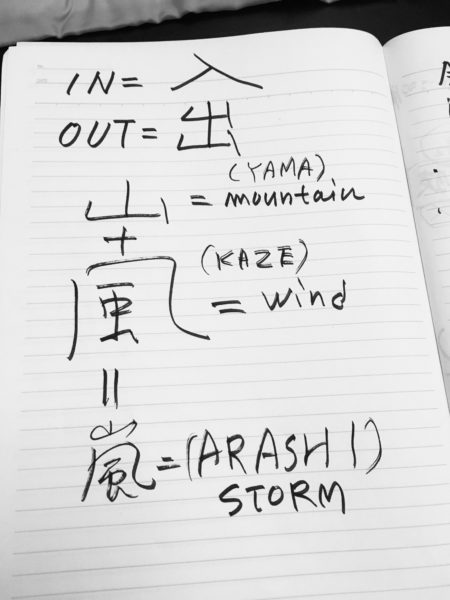 IN= 入
OUT= 出
(YAMA)
山 = mountain
+
(KAZE)
風 = wind
||
嵐=(ARASHI)
STORM